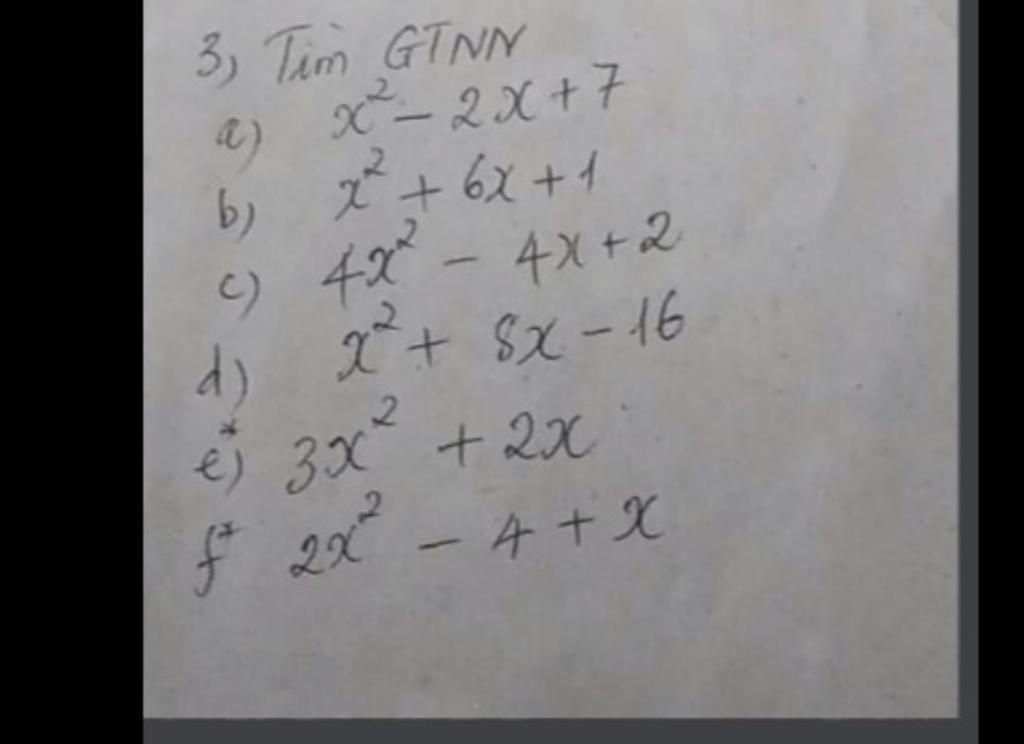 3, Tìm GTNN
a) x² - 2x + 7
b) x² + 6x + 1
c) 4x² - 4x + 2
d) x² + 8x - 16
e*) 3x² + 2x
f* 2x² - 4 + x